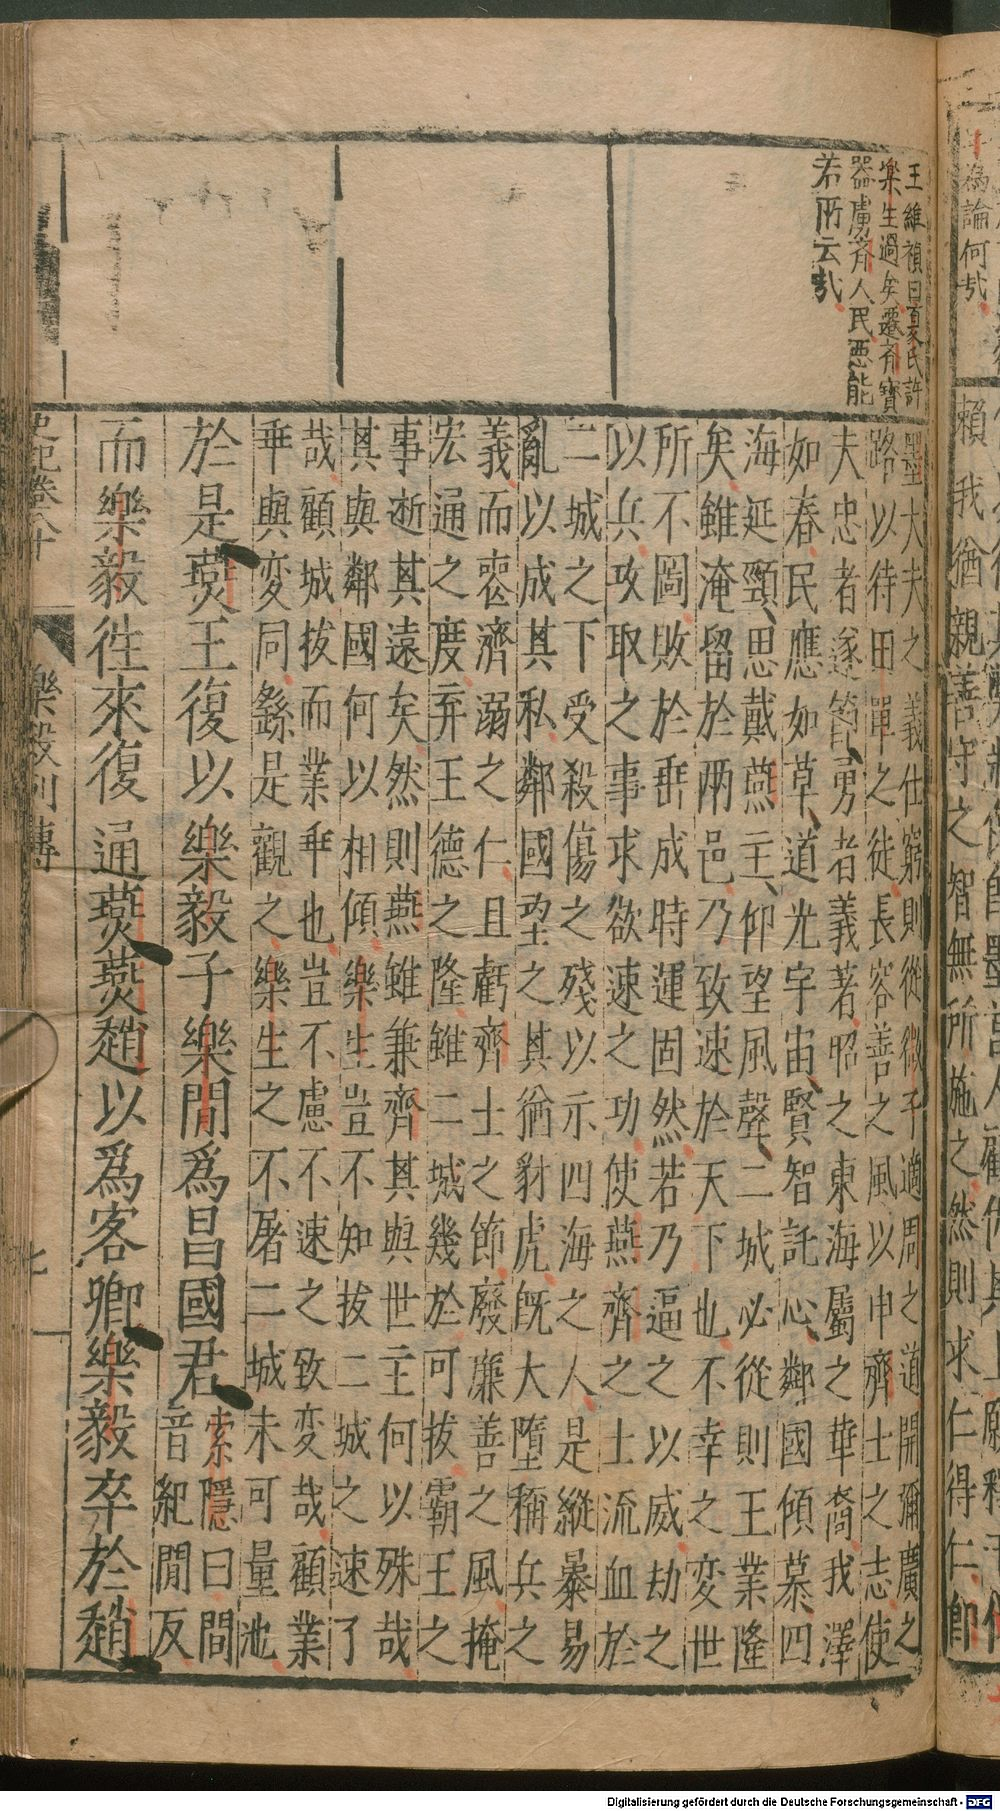 王維禎曰夏氏許
樂生過矣遷齊寶
器虜齊人民惡能
若所云哉
墨大夫之義仕窮則從微子適周之道開彌廣之
路以待田單之徒長容善之風以申齊士之志使
夫忠者遂節勇者義著昭之東海屬之華裔我澤
如春民應如草道光宇宙賢智託心鄰國傾慕四
海延頸思戴燕主仰望風聲二城必從則王業隆
矣雖淹留於兩邑乃致速於天下也不幸之変世
所不圖敗於垂成時運固然若乃逼之以威劫之
以兵攻取之事求欲速之功使燕齊之士流血於
二城之下受殺傷之殘以示四海之人是縱暴易
亂以成其私鄰國望之其猶豺虎既大墮稱兵之
義而喪濟溺之仁且虧齊士之節廢廉善之風掩
宏通之度弃王德之隆雖二城幾於可拔霸王之
事逝其遠矣然則燕雖兼齊其與世主何以殊哉
其與鄰國何以相傾樂生豈不知拔二城之速了
哉顧城拔而業乖也豈不慮不速之致変哉顧業
乖與変同繇是觀之樂生之不屠二城未可量也
於是燕王復以樂毅子樂閒爲昌國君
索隱曰間
音紀閒反
而樂毅徃來復通燕燕趙以爲客卿樂毅卒於趙
史記卷八十
樂毅列傳
七
爲論何哉
賴我猶親善守之智無所施之然則求仁得仁卽
Digitalisierung gefördert durch die Deutsche Forschungsgemeinschaft - DFG